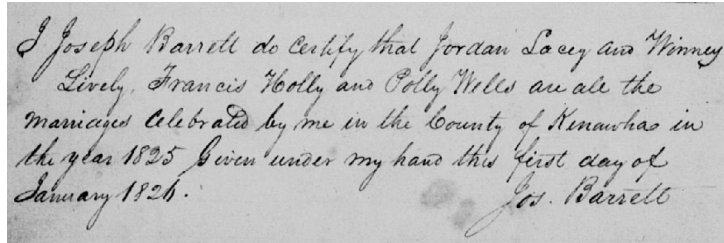 I Joseph Barrett do certify that Jordan Lacey and Winney
Lively, Francis Holly and Polly Wells are all the
marriages Celebrated by me in the County of Kenawha in
the year 1825 Given under my hand this first day of
January 1826.
Jos. Barrett